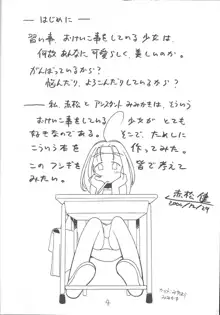 ― はじめに ―
習い事、おけいこ事をしている少女は、
何故あんなに可愛らしく、美しいのか。
がんばっているから?
悩んだり、よろこんだりしているから?
― 私、赤松とアシスタントみみかきは、そういう
おけいこ事をしている少女がとて
も好きなのである。そこで、ためしに
こういう本を作ってみた。
このフシギを皆で考えて
みたい。
赤松 健
2000/12/29
4